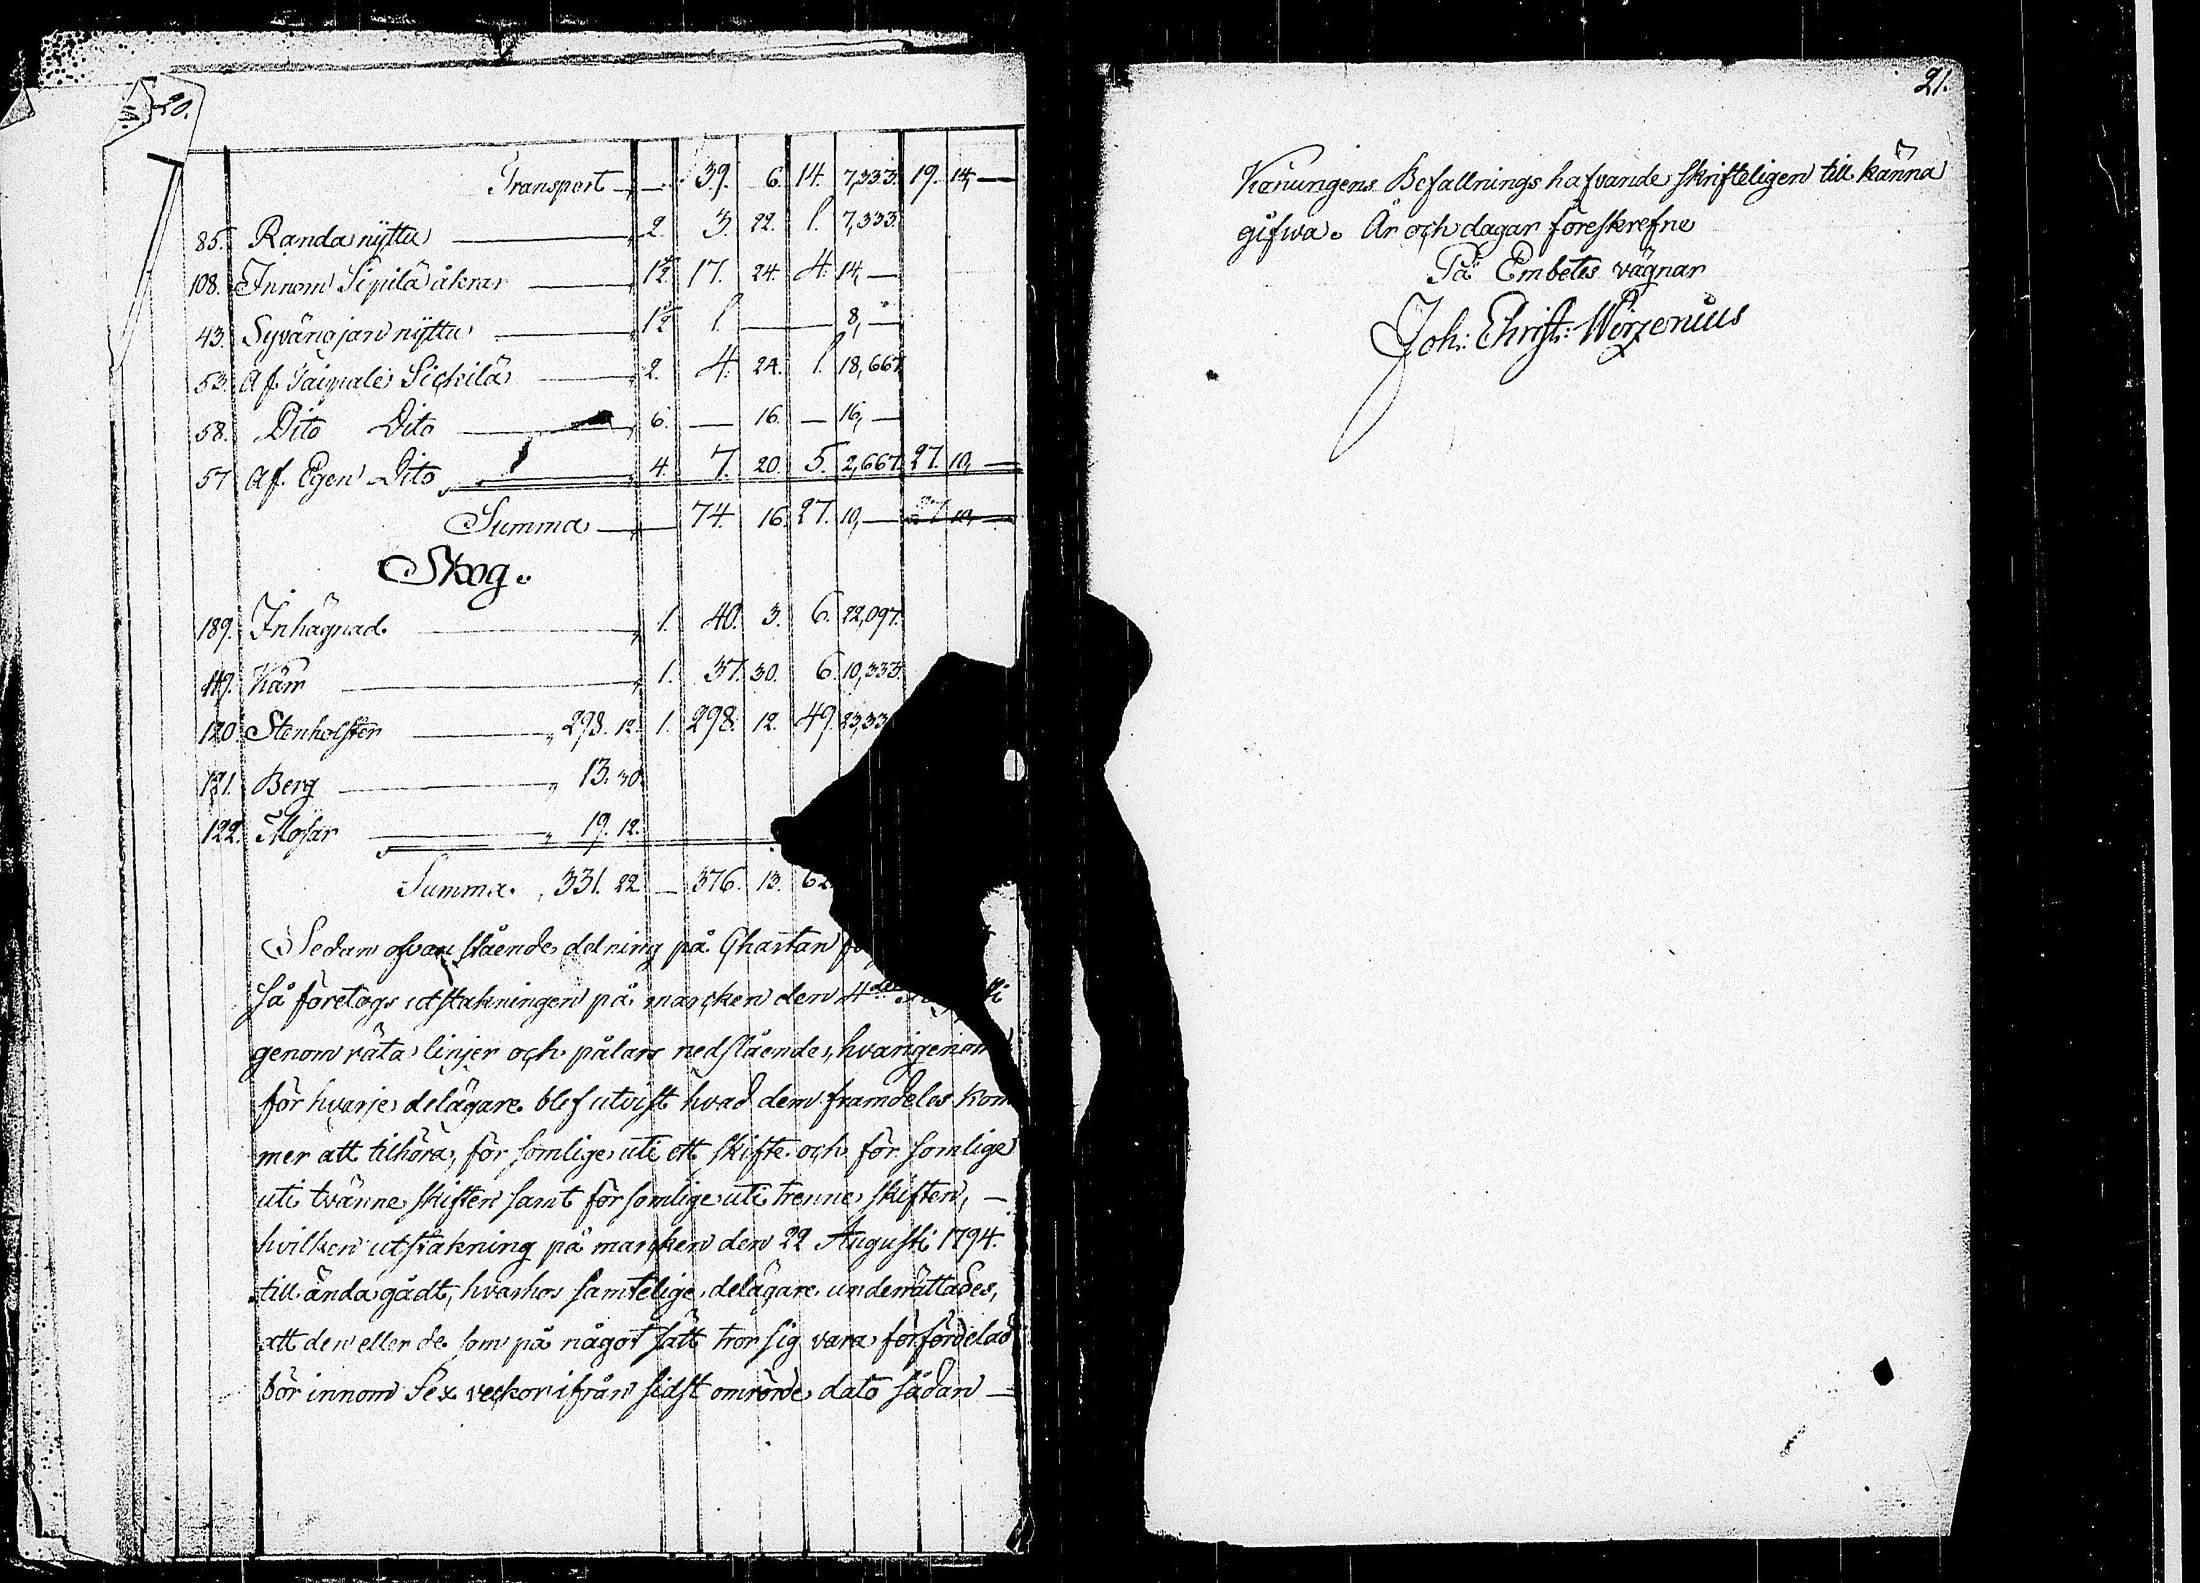 20.
Transport — 39. 6. 14. 7,333. 19. 14, —
85. Randa nyttu — 2. 3. 22. 1. 7,333.
108. Innom Sipilä åkrar — 1½ 17. 24. 4. 14, —
43. Syvänojan nyttu — 1½ 1. — 8, —
53. Af Taipale Sickilä — 2. 4. 24. 1. 18,667
58. Dito Dito — 6. — 16. — 16, —
57 Af Egen Dito — 4. 7. 20. 5. 2,667. 27. 10, —
Summa — 74. 16. 27. 10, — 27 10, —
Skog.
189. Inhägnad — 1. 40. 3. 6. 22,097.
119. Kärr — 1. 37. 30. 6. 10,333.
120. Stenholster — 298. 12. 1. 298. 12. 49. 23,33
121. Berg — 13. 30.
122. Mosar — 19. 12.
Summa. 331. 22. — 376. 13. 62
Sedan ofvan stående delning på Chartan
så företogs utstakningen på marcken den 4de
genom räta linjer och pålars nedslående, hvarigenom
för hvarje delägare blef utvist hvad dem framdeles kom
mer att tilhöra, för somlige uti ett skifte och för somlige
uti tvänne skiften samt för somlige uti trenne skiften, —
hvilken utstakning på marcken den 22 Augusti 1794.
till ända gådt, hvarhos samtelige delägare underrättades,
att den eller de som på något sätt tror sig vara förfördelad
bör innom Sex veckor ifrån sidst omrörde dato sådan —
21.
Konungens Befallningshafvande skrifteligen till känna
gifwa. År och dagar föreskrefne
På Embetes vägnar
Joh: Christ: Wirzenius